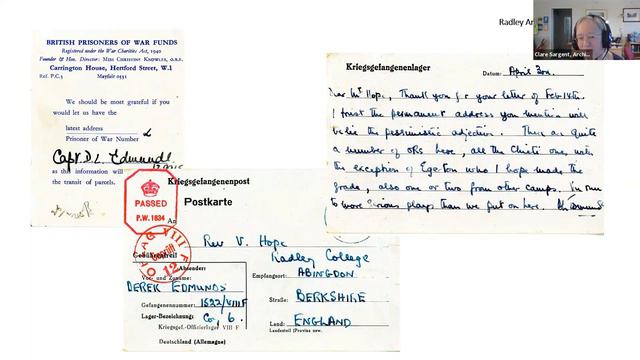 Radley Ar
Clare Sargent, Archi...
BRITISH PRISONERS OF WAR FUNDS
Registered under the War Charities Act, 1940
Founder & Hon. Director: MISS CHRISTINE KNOWLES, O.B.E.
Carrington House, Hertford Street, W.1
Ref. P.C.3 Mayfair 0531
We should be most grateful if you
would let us have the
latest address
Prisoner of War Number
Capt. D.L. Edmunds
as this information will
the transit of parcels.
Kriegsgefangenenlager Datum: April 3
Dear Mr Hope, Thank you for your letter of Feb 14th.
I trust the permanent address you mention will
belie the pessimistic adjective. There are quite
a number of ORs here, all the Chieti ones with
the exception of Egerton who I hope made the
grade, also one or two from other camps.
to more serious plays than we put on here.
Kriegsgefangenenpost
PASSED
P.W. 1834
Postkarte
An
OFLAG VIII F
Geprüft
12
Rev V. Hope
Radley College
Gebührenfrei
Absender:
Vor- und Zuname:
DEREK EDMUNDS
Gefangenennummer: 1522/VIII F
Lager-Bezeichnung: Co, 6.
Kriegsgef.-Offizierlager VIII F
Deutschland (Allemagne)
Empfangsort: ABINGDON
Straße: BERKSHIRE
Land: ENGLAND
Landesteil (Provinz usw.)